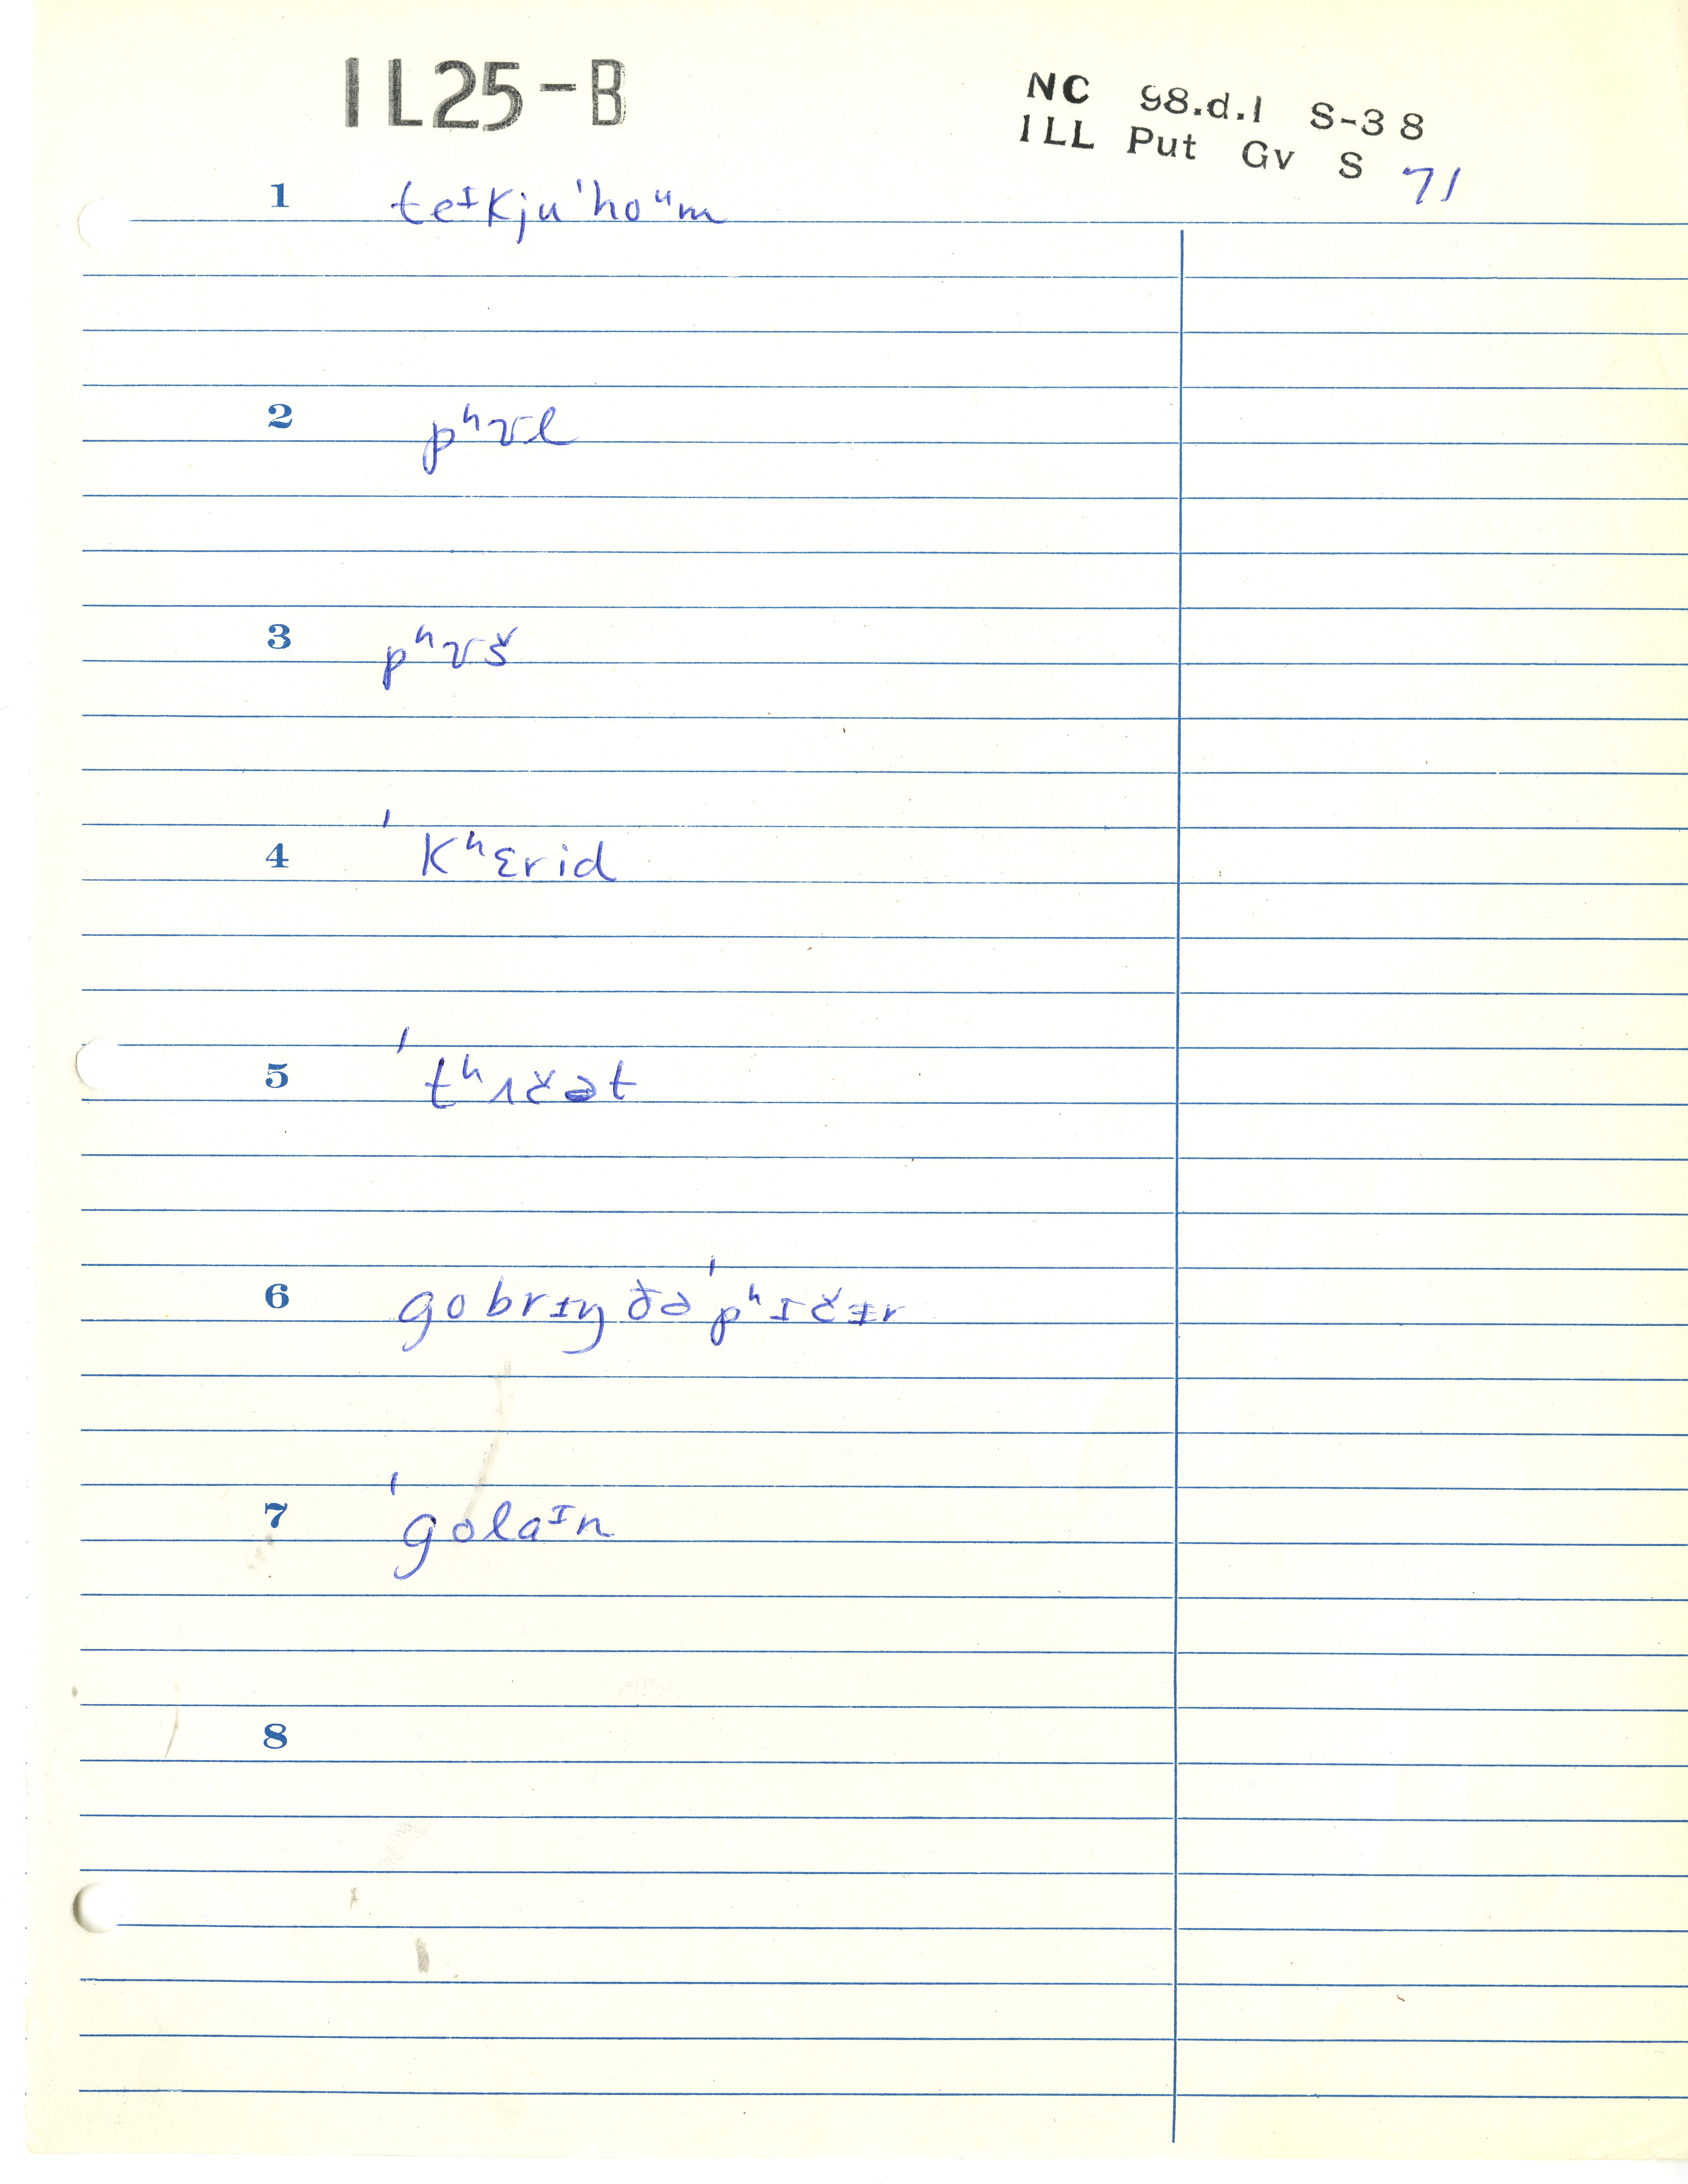 1L25-B
NC 98.d.1 S-38
ILL Put Gv S 71
1 teᴵkju'hoᵘm
2 pʰʊl
3 pʰʊš
4 ˈkʰɛrid
5 ˈtʰɪčət
6 gobrɪŋ ðə ˈpʰɪčɨr
7 ˈgolaᴵn
8